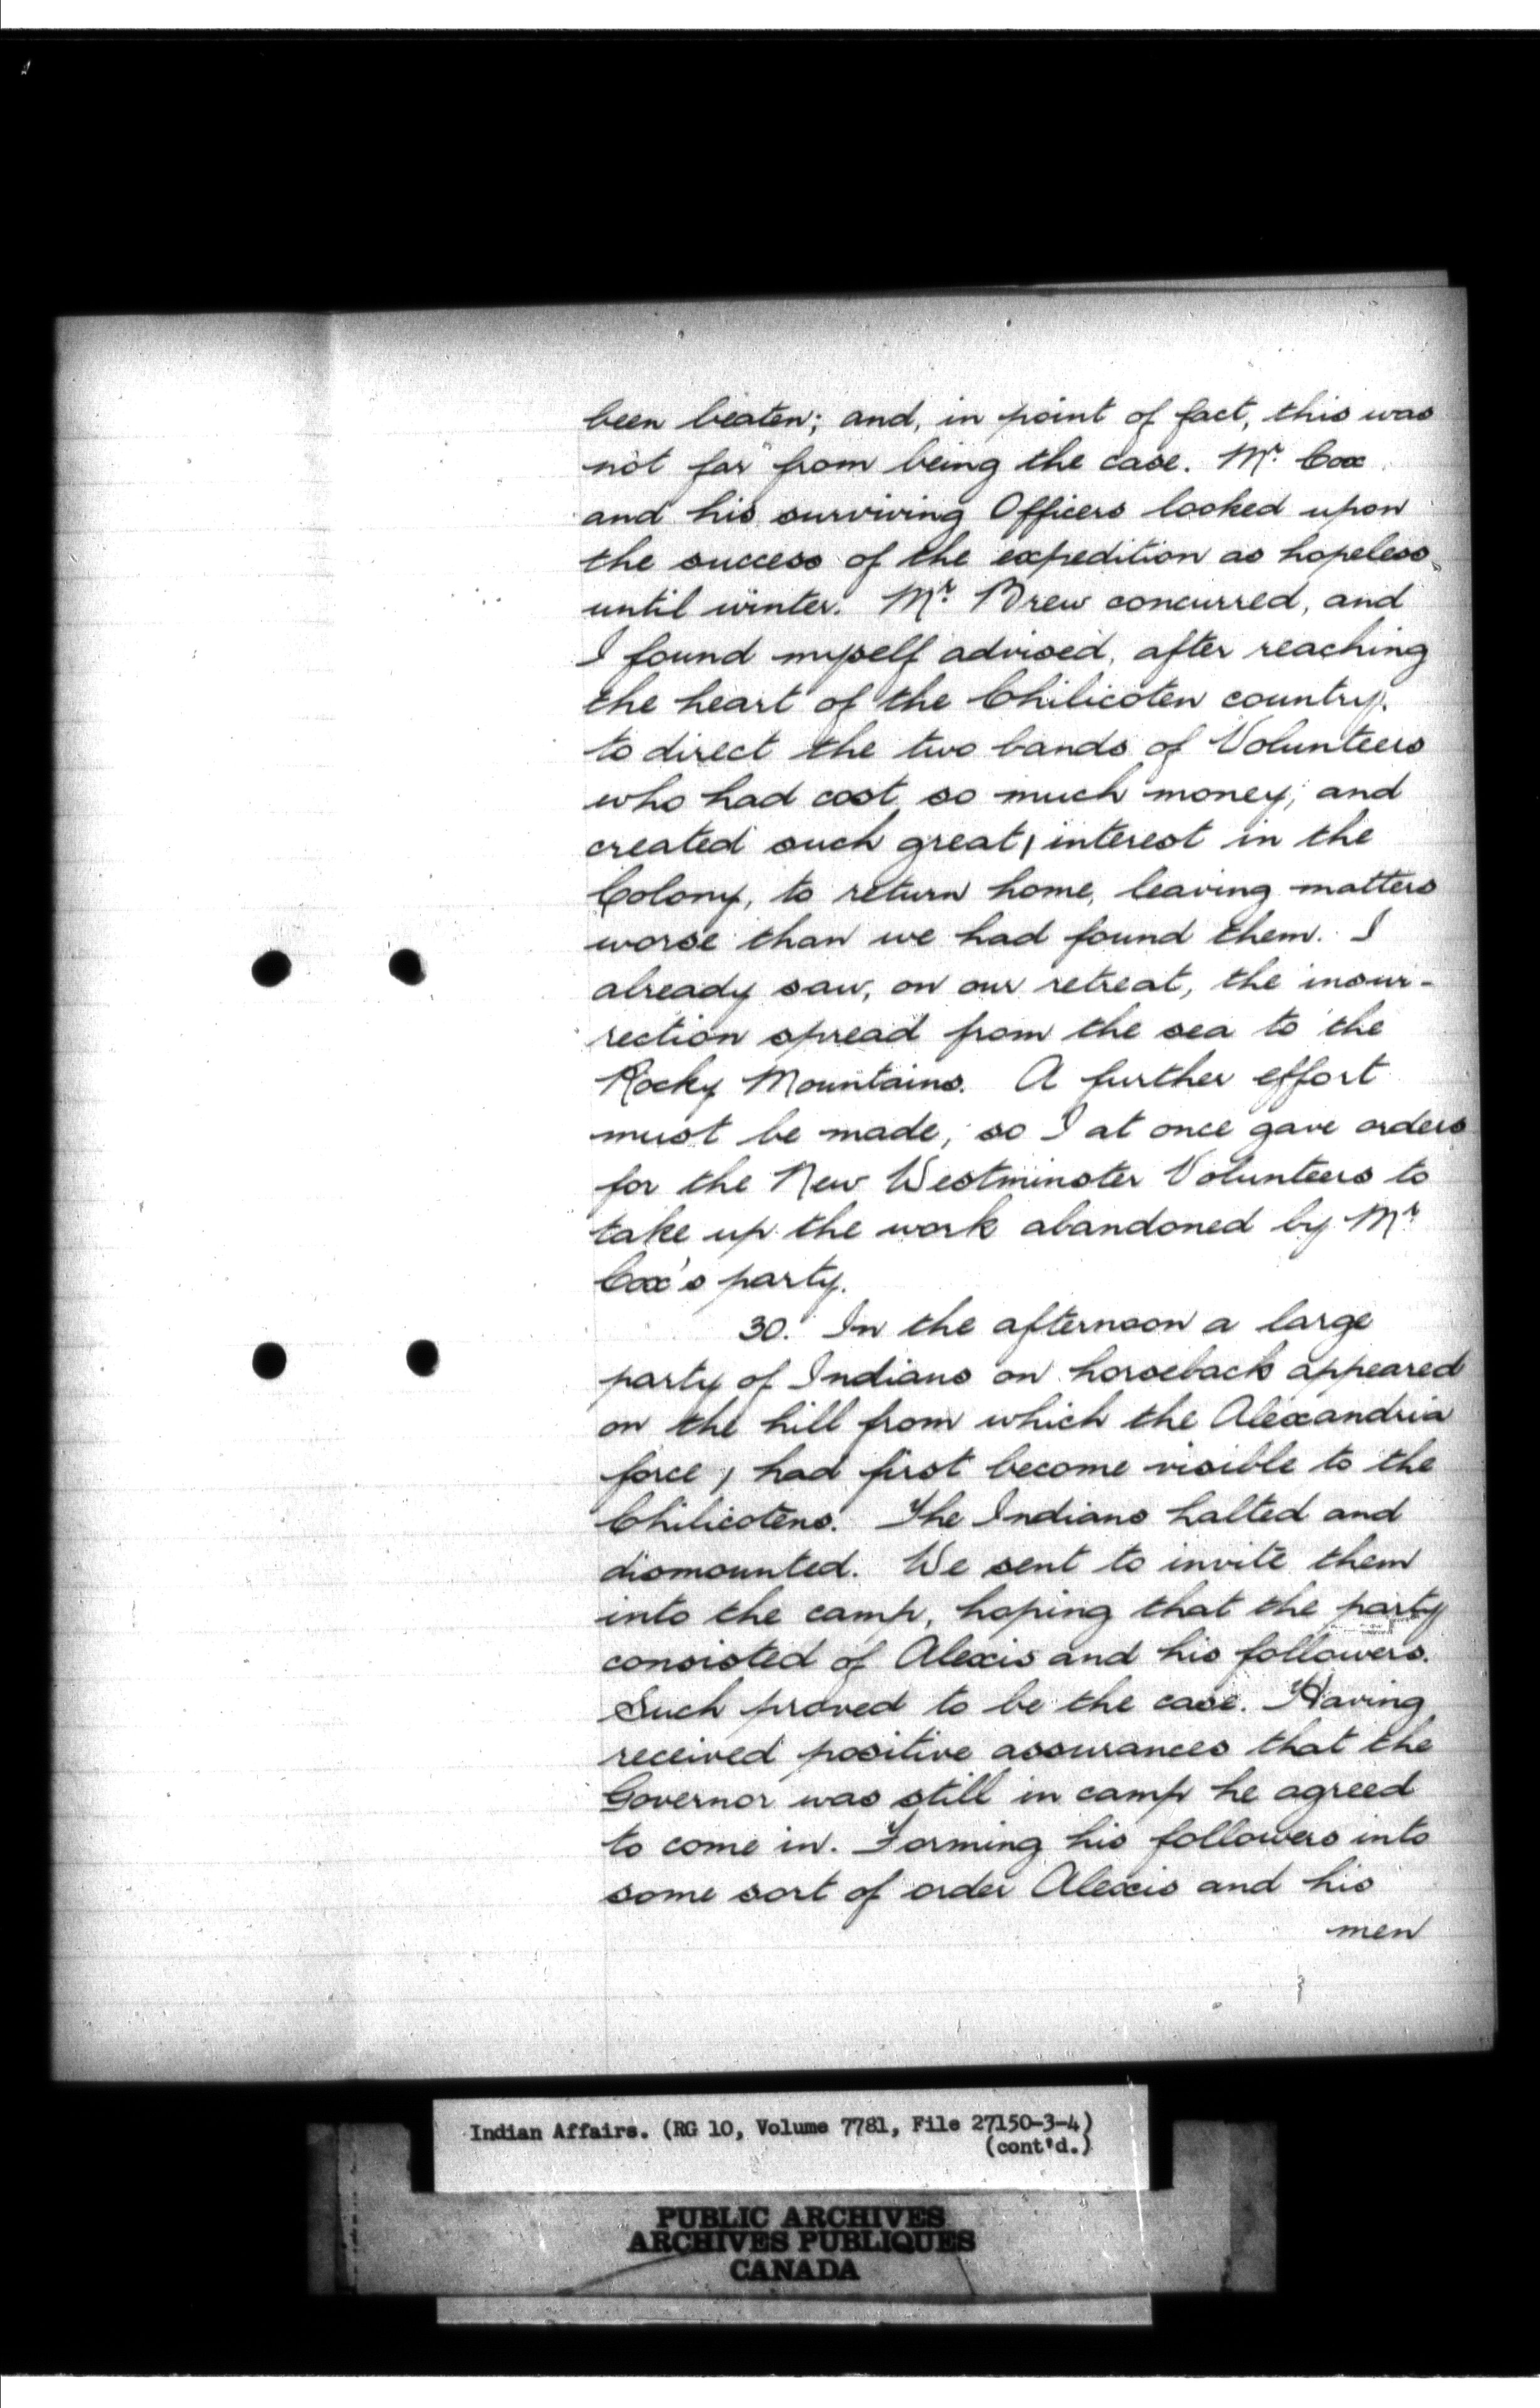 been beaten; and, in point of fact, this was
not far from being the case. Mr. Cox
and his surviving Officers looked upon
the success of the expedition as hopeless,
until winter. Mr. Brew concurred, and
I found myself advised, after reaching
the heart of the Chilicoten country,
to direct the two bands of Volunteers
who had cost so much money, and
created such great, interest in the
Colony, to return home, leaving matters
worse than we had found them. I
already saw, on our retreat, the insur-
rection spread from the sea to the
Rocky Mountains. A further effort
must be made, so I at once gave orders
for the New Westminster Volunteers to
take up the work abandoned by Mr.
Cox's party.
30. In the afternoon a large
party of Indians on horseback appeared
on the hill from which the Alexandria
force, had first become visible to the
Chilicotens. The Indians halted and
dismounted. We sent to invite them
into the camp, hoping that the party
consisted of Alexis and his followers.
Such proved to be the case. Having
received positive assurances that the
Governor was still in camp he agreed
to come in. Forming his followers into
some sort of order Alexis and his
men
Indian Affairs. (RG 10, Volume 7781, File 27150-3-4)
(cont'd.)
PUBLIC ARCHIVES
ARCHIVES PUBLIQUES
CANADA